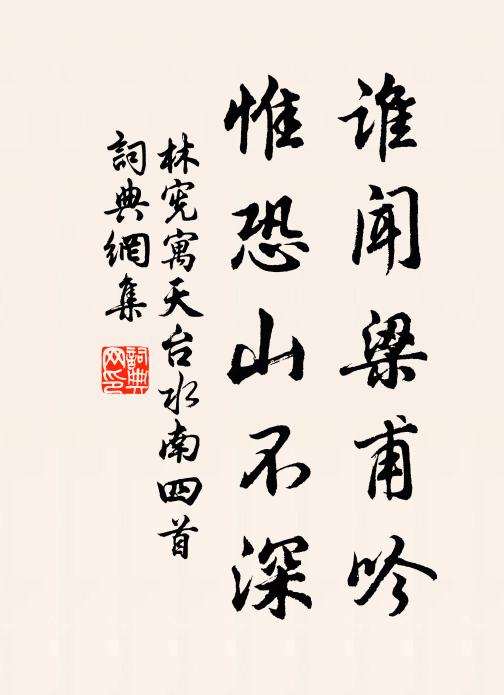 谁闻梁甫吟
惟恐山不深
林宪寓天台水南四首
詞典網集
詞典網印